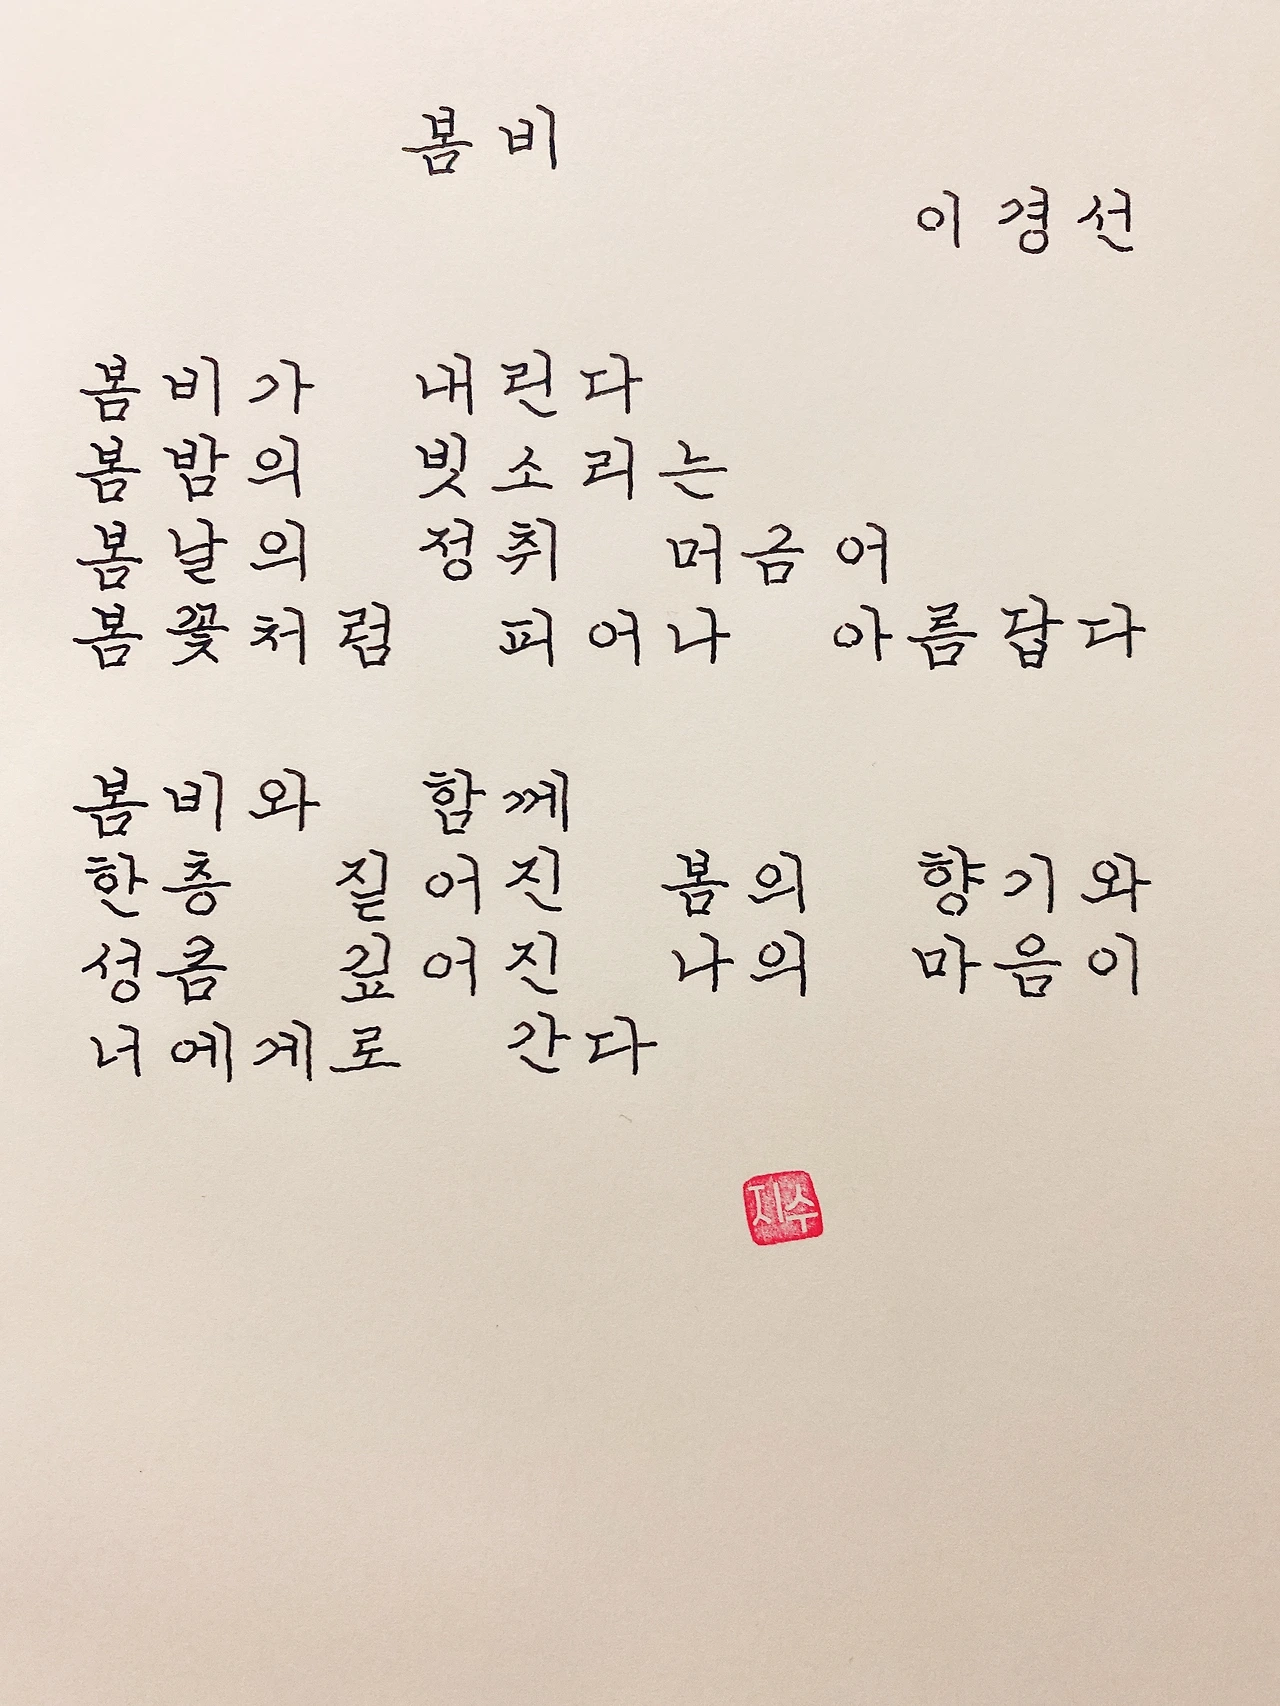 봄비
이경선
봄비가 내린다
봄밤의 빗소리는
봄날의 정취 머금어
봄꽃처럼 피어나 아름답다
봄비와 함께
한층 짙어진 봄의 향기와
성큼 깊어진 나의 마음이
너에게로 간다
지수